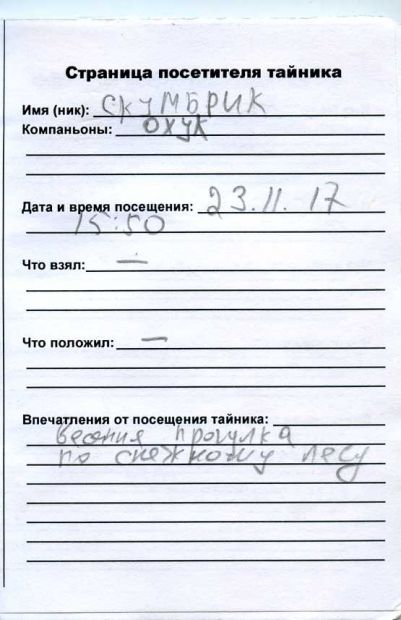 Страница посетителя тайника
Имя (ник): СКУМБРИК
Компаньоны: ОХУК
Дата и время посещения: 23.11.17
15:50
Что взял: —
Что положил: —
Впечатления от посещения тайника:
прогулка
по снежному лесу